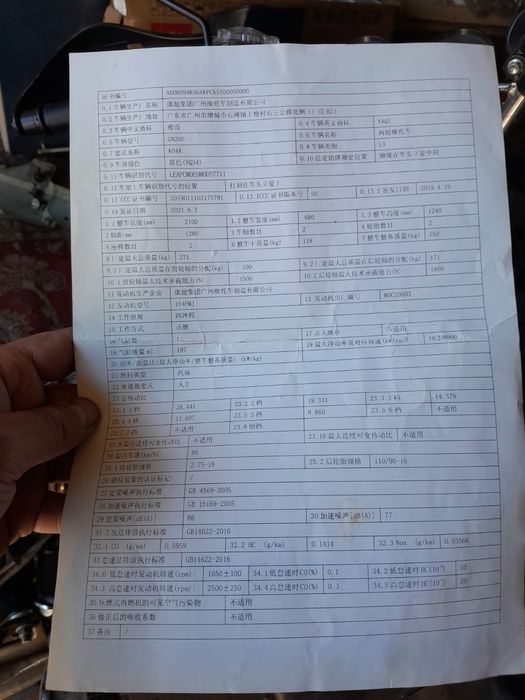 证书编号 A008099K06AKPCKSA00000000
0.1 车辆生产厂名称 康超集团广州摩托车制造有限公司
0.2 车辆生产厂地址 广东省广州市增城市石滩镇上塘村石三公路北侧(厂房B2)
0.3 车辆中文商标 雅奇 0.4 车辆英文商标 YAQI
0.5 车辆型号 GN200 0.6 车辆名称 两轮摩托车
0.7 型式名称 K04A 0.8 车辆类别 L3
0.9 车身颜色 蓝色(YQ34) 0.10 法定铭牌规定位置 铆接在车头立管中间
0.11 车辆识别代号 LEAPCM0E3M0057711
0.12 车架上车辆识别代号的位置 打刻在车头立管上
0.13 CCC 证书编号 2019011102175791 0.13.1CCC 证书版本号 00 0.13.2 签发日期 2019.4.19
0.14 发证日期 2021.6.5
1.1 整车长度(mm) 2100 1.2 整车宽度(mm) 680 1.3 整车高度(mm) 1240
2 轴距mm 1280 3 车轴数目 2 4 轮胎数目 2
5 座椅数目 2 6 整车干质量(kg) 118 7 整车整备质量(kg) 150
8 厂定最大总质量(kg) 271
9.1 厂定最大总质量在前轮轴的分配(kg) 100 9.2 厂定最大总质量在后轮轴的分配(kg) 171
10.1 前轮轴最大技术承载能力(N) 1500 10.2 后轮轴最大技术承载能力(N) 1800
11 发动机生产企业 康超集团广州摩托车制造有限公司
12 发动机型号 164FMJ 13 发动机出厂编号 M0C20603
14 工作原理 四冲程
15 工作方式 点燃
16 气缸数 1 17 点火顺序 不适用
18 气缸排量ml 197 19 最大净功率及对应转速 10.2/8000
20 功率/质量比(最大净功率/整车整备质量) (kW/kg)
21 燃料类型 汽油
22 变速器型式 人工
23 总传动比
23.1 1档 28.441 23.2 2档 19.331 23.3 3档 14.379
23.4 4档 11.607 23.5 5档 9.860 23.6 6档 不适用
23.7 7档 不适用 23.8 倒档
23.9 最小连续可变传动比 不适用 23.10 最大连续可变传动比 不适用
24 最高车速(km/h) 95
25.1 前轮胎规格 2.75-18 25.2 后轮胎规格 110/90-16
26 联结装置的认证标记 /
27 定置噪声执行标准 GB 4569-2005
28 加速噪声执行标准 GB 16169-2005
29 定置噪声[dB(A)] 86 30 加速噪声[dB(A)] 77
31 工况法排放执行标准 GB14622-2016
32.1 CO (g/km) 0.5959 32.2 HC (g/km) 0.1414 32.3 Nox (g/km) 0.03566
33 怠速法排放执行标准 GB14622-2016
34.0 低怠速时发动机转速(rpm): 1650±100 34.1 低怠速时CO(%) 0.1 34.2 低怠速时HC(10⁻⁶) 10
34.3 高怠速时发动机转速(rpm): 2500±250 34.4 高怠速时CO(%) 34.5 高怠速时HC(10⁻⁶) 20
35 压燃式内燃机的可见空气污染物 不适用
36 修正后的吸收系数 不适用
37 备注 /